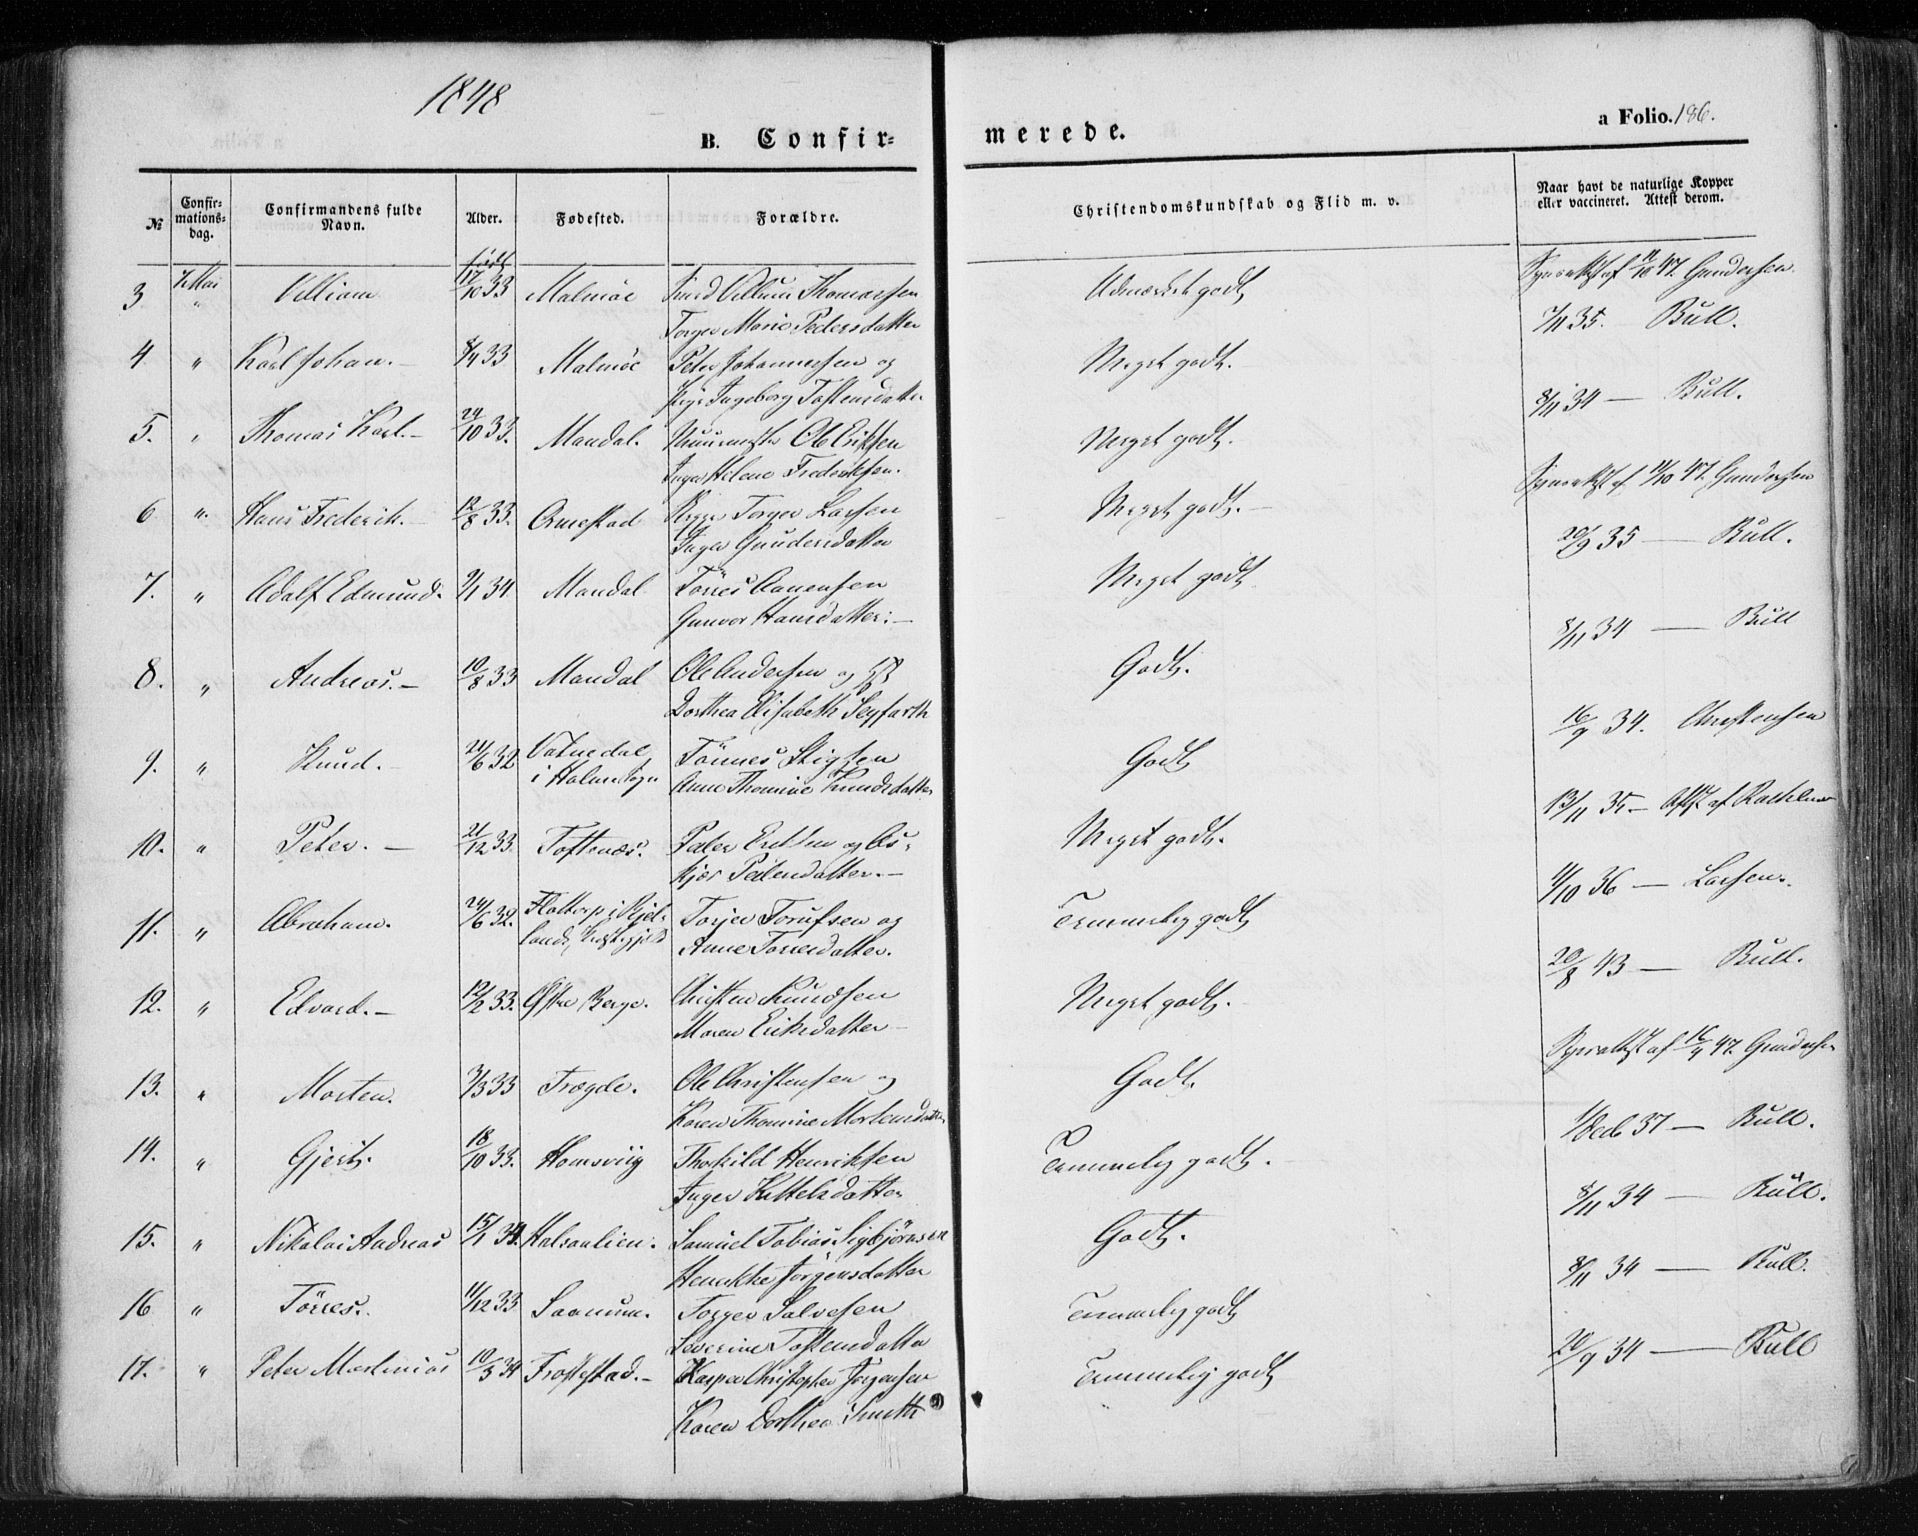 1848
B. Confirmerede.
a Folio. 186.
№
Confirmations-dag.
Confirmandens fulde Navn.
Alder.
Fødested.
Forældre.
Christendomskundskab og Flid m. v.
Naar havt de naturlige Kopper eller vaccineret. Attest derom.
3 Mai " Villiam født 17/10 33 Malmöe Villum Thomassen Udmærket godt 11/10 47. Gundersen
Marie Pedersdatter 7/11 35. Bull.
4 " Karl Johan. 33 Malmöe Peter Johannessen og Meget godt.
Ingeborg Tostensdatter 8/11 34 — Bull.
5. " Thomas Karl. 24/10 33. Mandal. Ole Eriksen Meget godt.
Inger Helene Fredriksen. 11/10 47. Gundersen
6 " Hans Frederik. 12/8 33. Ormestad Torger Larsen Meget godt.
Inger Gundersdatter 20/9 35 — Bull.
7. " Adolf Edmund. 9/1 34 Mandal Törres Aanensen Meget godt
Gunvor Hansdatter. 8/11 34 — Bull
8. " Andreas. 10/8 33 Mandal Ole Andersen og Godt.
Dorthea Elisabeth Seyfarth 16/9 34. Christensen
9. " Knud. 24/6 32 i Holme Sogn Tönnes Stigsen Godt
Anne Thomine Knudsdatter 13/11 35 — Attst af
10. " Peter. 21/12 33 Toftenæs. Peder Eriksen og As-
kjær Pedersdatter. Meget godt. 4/10 36 — Larsen.
11. " Abraham. 24/6 32. Flottorp i Torjer og Temmelig godt
Anne Torresdatter. 20/8 43 — Bull.
12. " Edvard. 12/2 33. Østre Berge. Christen Knudsen Meget godt.
Maren Eriksdatter 16/4 47. Gundersen
13. " Morten. 7/3 33 Trægde. Ole Christensen og Godt.
Karen Thomine Mortensdatter 1/Decb 37 — Bull.
14. " Gjert. 18/10 33. Homsviig Thorkild Henriksen Temmelig godt.
Inger Kittelsdatter 8/11 34 — Bull.
15. " Nikolai Andreas 15/1 34. Halsaalien. Samuel Tobias Sigbjörnsen Godt.
Henrikke Jörgensdatter 8/11 34 — Bull.
16 " Törres. 11/12 33 Saanum. Torger Salvesen Temmelig godt
Severine Tostensdatter 20/9 34 — Bull
17. " Peter Martinius 10/3 34 Frostestad. Kasper Christopher Jörgensen Temmelig godt
Karen Dorthea Smith